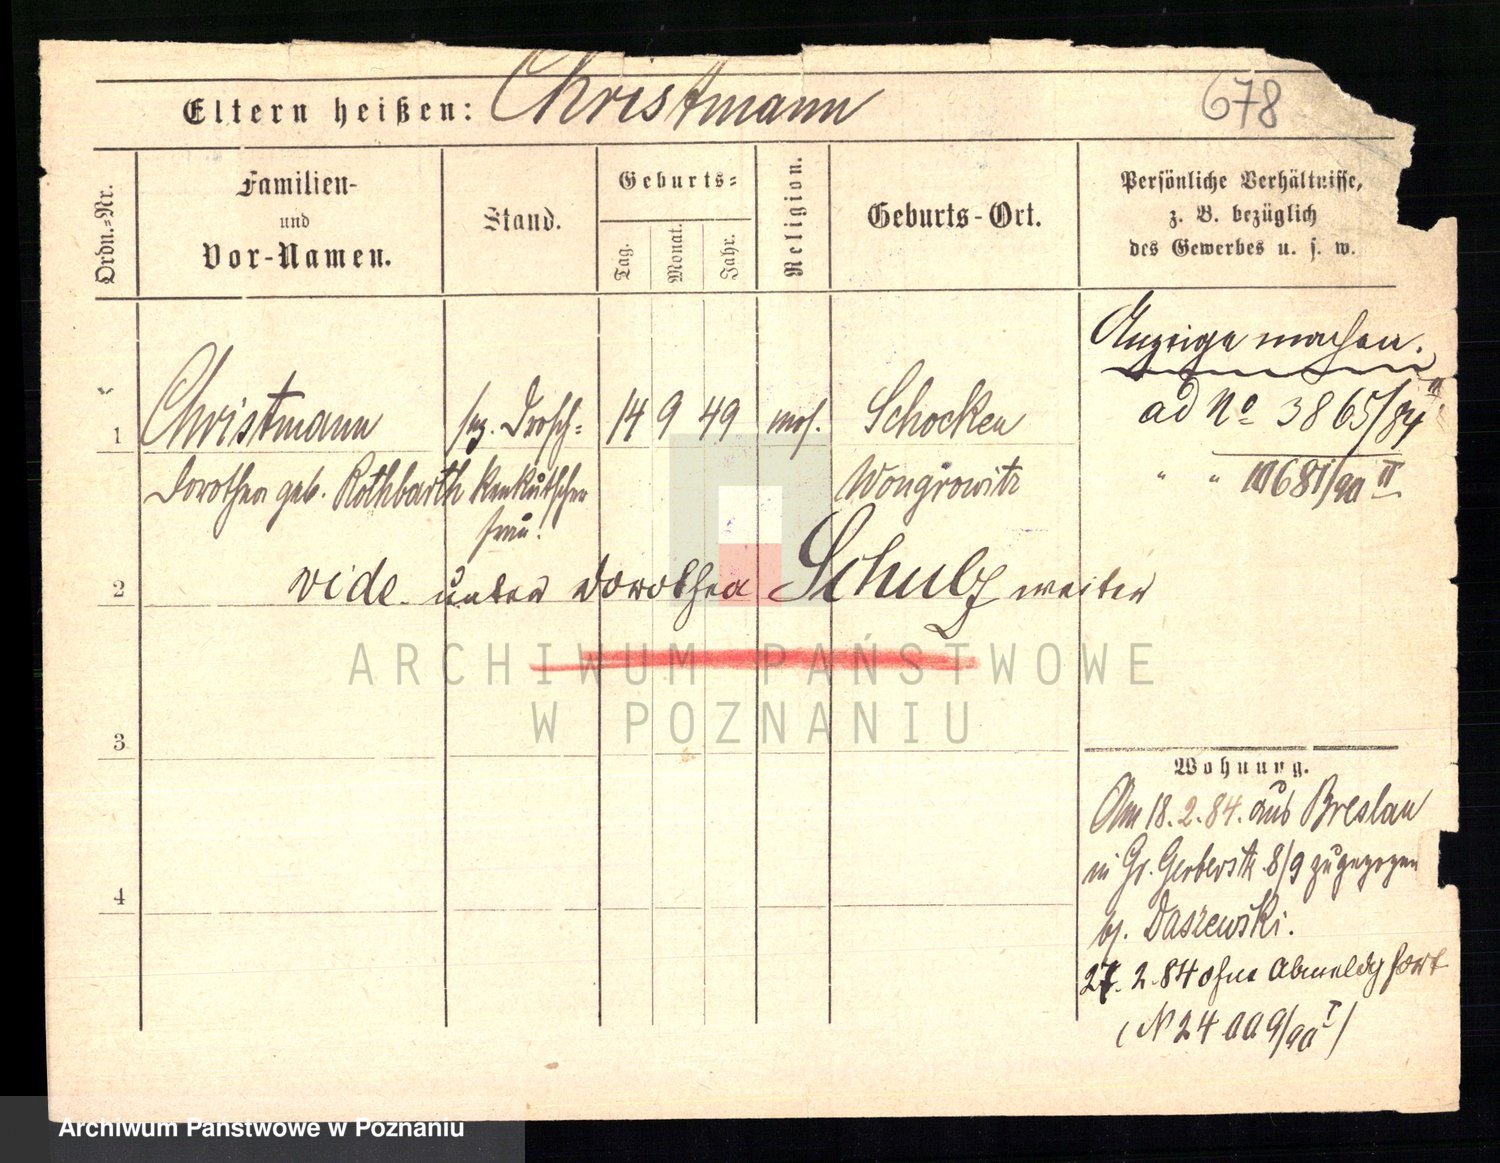 Eltern heißen: Christmann
678
Ordn.-Nr.
Familien-
und
Vor-Namen.
Stand.
Geburts-
Tag.
Monat.
Jahr.
Religion.
Geburts-Ort.
Persönliche Verhältnisse,
z. B. bezüglich
des Gewerbes u. s. w.
Anzeige machen.
ad No 3865/84 II
" " 10681/90 II
1
Christmann
Dorothea geb. Rothbarth
Drosch-
kenkutscher
frau.
14 9 49 mos. Schocken
Wongrowitz
2
vide unter Dorothea Schulz weiter
ARCHIWUM PAŃSTWOWE
W POZNANIU
3
4
Wohnung.
Am 18.2.84. aus Breslau
in Gr. Gerberstr. 8/9 zugezogen
bj. Daszewski.
27.2.84 ohne Abmeldg fort
Archiwum Państwowe w Poznaniu